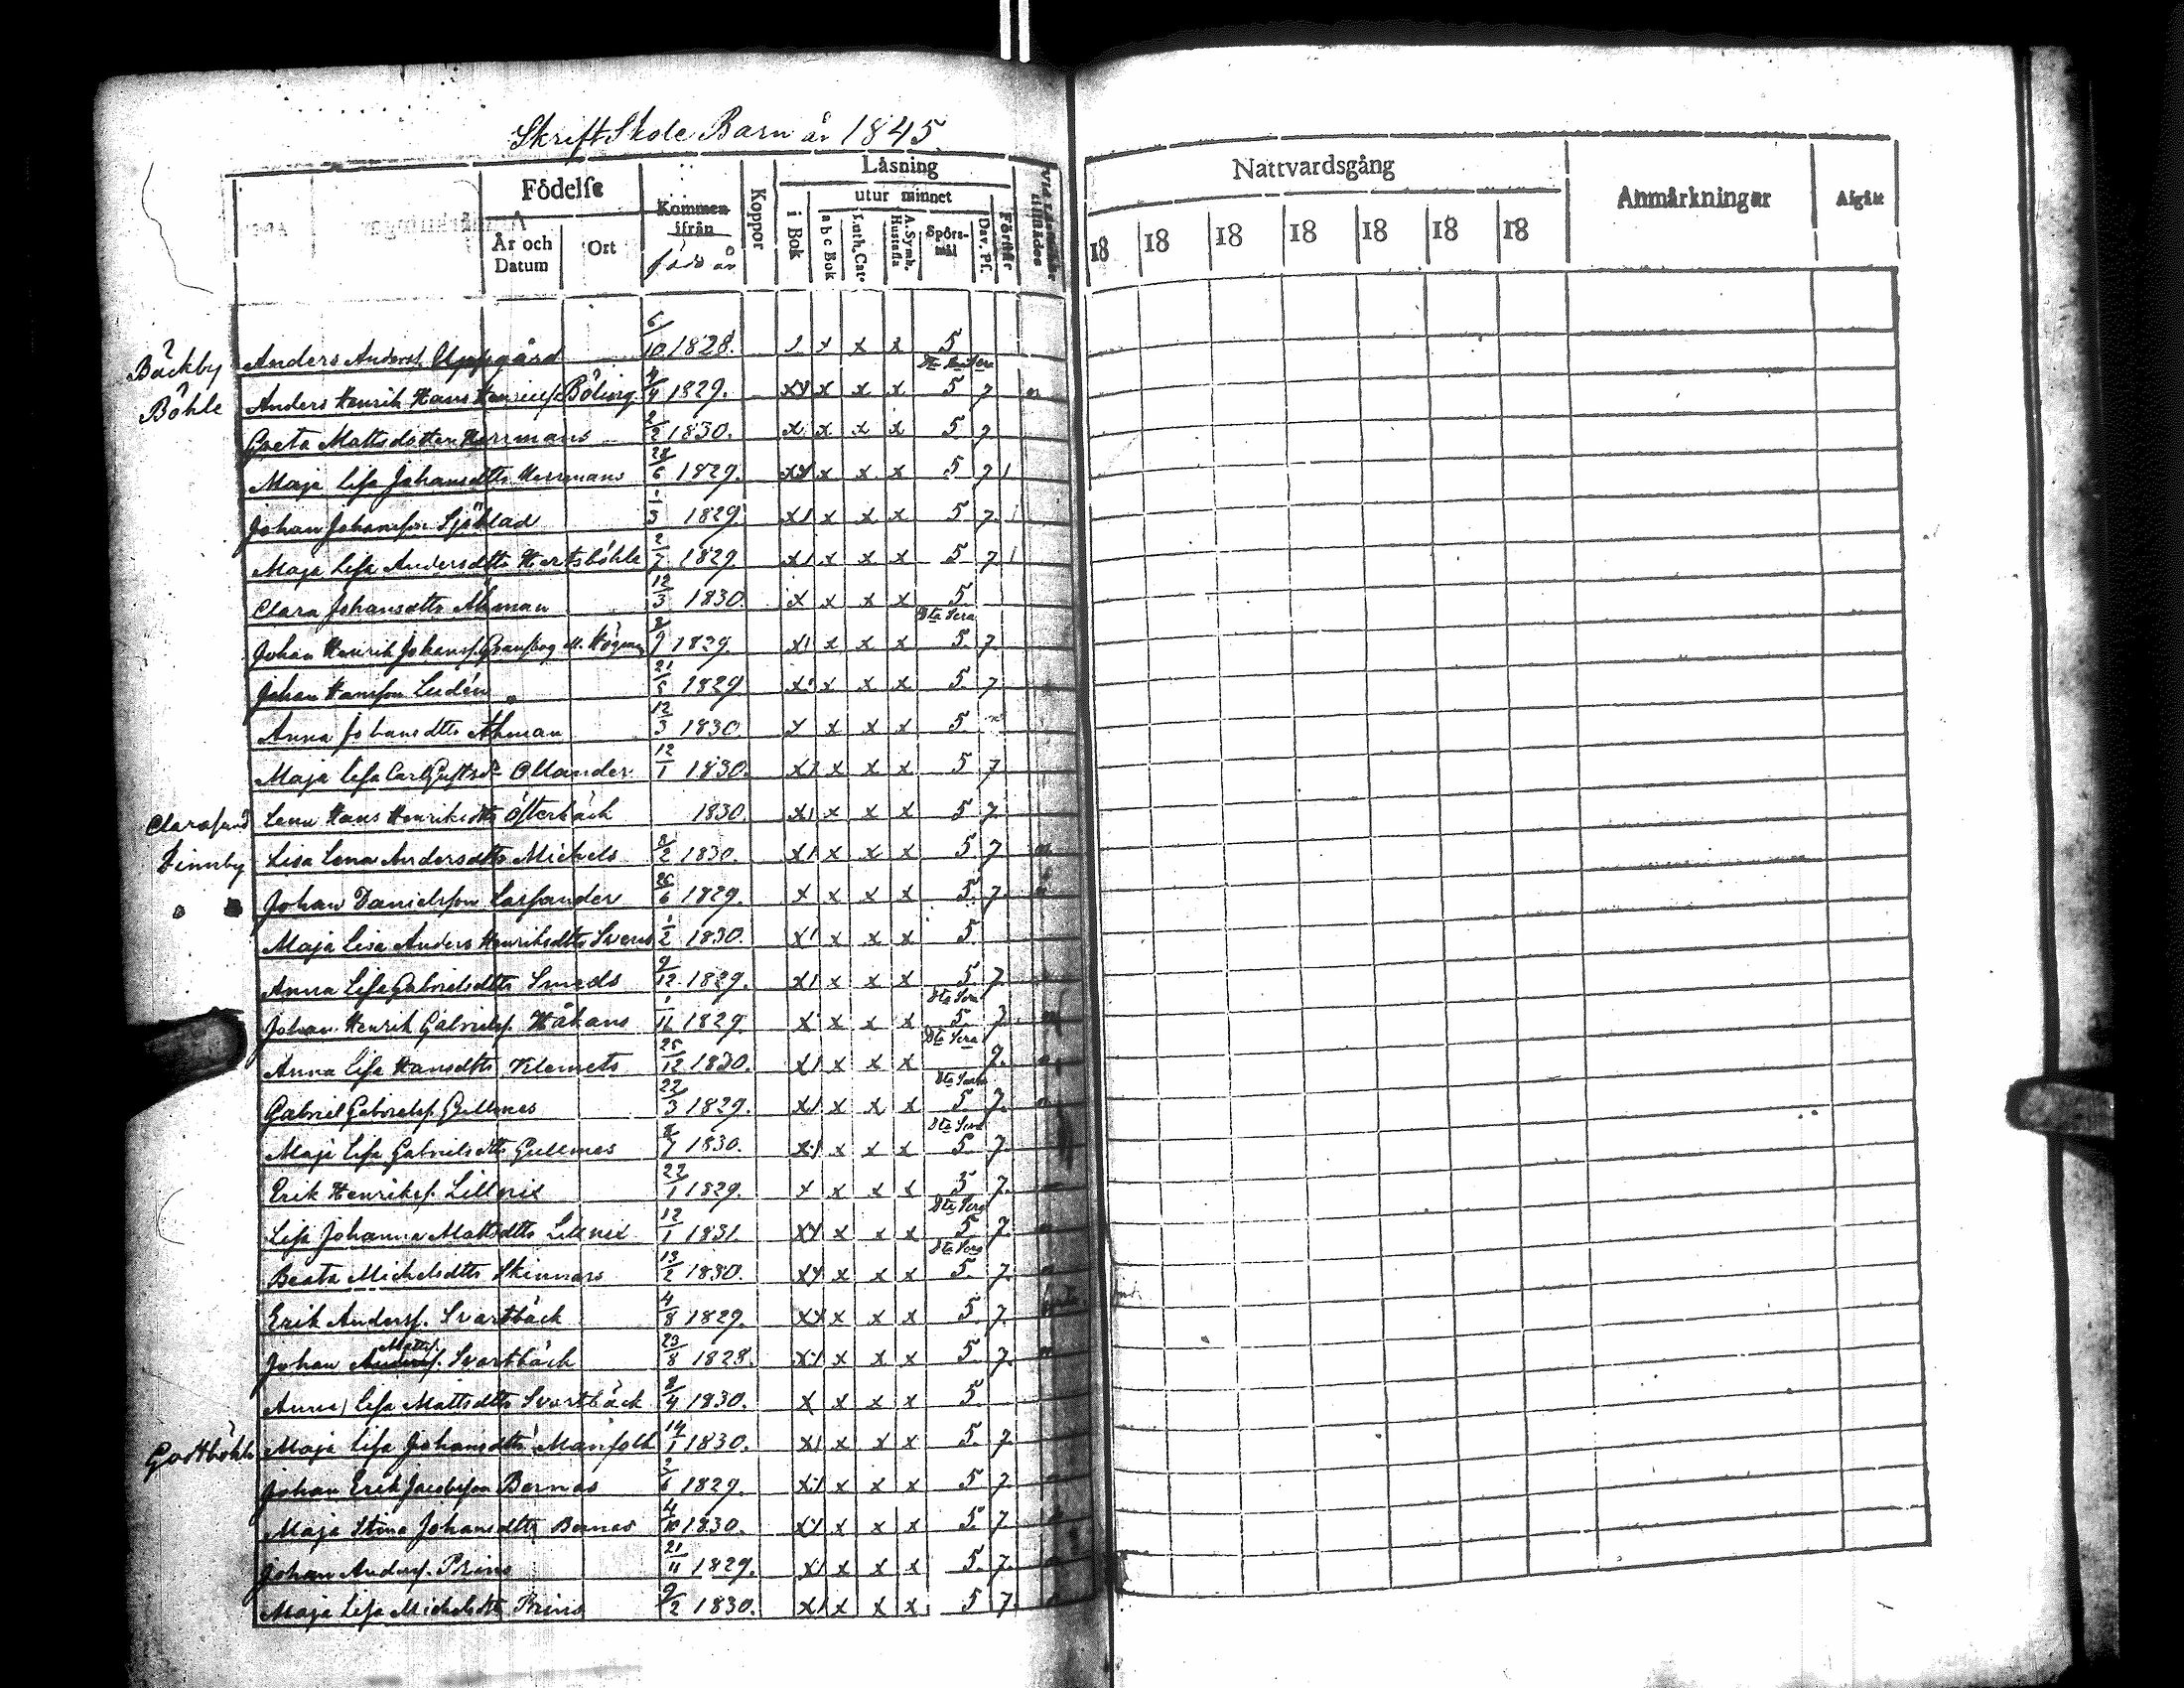 Skrift Skole Barn år 1845.
Födelse
År och Datum
Ort
Kommen ifrån
född år
Koppor
Läsning
i Bok
utur minnet
a b c Bok
Luth. Cat.
A. Symb. Hustafla
Spörsmål
Dav. Ps.
Förstår
Nattvardsgång
18 18 18 18 18 18 18
Anmärkningar
Afgått
Bäckby Anders Anderss. Uppgård 6/10 1828. x x x 5
Böhle Anders Henrik Hans Böling 4/4 1829. xx x x x 5 7
Greta Mattsdotter Herrmans 2/2 1830. x x x x 5 7
Maja Lisa Johansdttr Herrmans 28/6 1829. xx x x x 5 7
Johan Johansson Sjöblad 1/3 1829. x x x x 5 7
Maja Lisa Andersdttr Hertsböhle 2/7 1829 x x x x 5 7
Clara Johansdttr Åhman 12/3 1830. x x x x 5
Johan Henrik Johanss. 1829. x x x x 5 7
Johan Hansson Ludén 21/5 1829 x x x x 5 7
Anna Johansdttr Åhman 12/3 1830 x x x x 5
Maja Lisa Carl Ollander 12/1 1830. x x x x 5 7
Clarasund Lena Hans Henriksdttr Österbäck 1830. x x x x 5 7
Finnby Lisa Lena Andersdttr Michels 8/2 1830. x x x x 5 7
Johan Danielsson Cassander 26/6 1829. x x x x 5 7
Maja Lisa Anders Henriksdttr Svens 1/2 1830. x x x x 5
Anna Lisa Gabrielsdttr Smeds 9/12 1829. x x x x 5 7
Johan Henrik Gabriels. Håkans 1829. x x x x 5 7
Anna Lisa Hansdttr Klemets 25/12 1830. x x x x 7.
Gabriel Gabriels. Gullmes 22/3 1829. x x x x 5 7.
Maja Lisa Gabrielsdttr Gullmes 8/7 1830. x x x x 5. 7.
Erik Henriks. Lillnix 22/1 1829. x x x x 5 7.
Lisa Johanna Mattsdttr Lillnix 12/1 1831. xx x x x 5 7.
Beata Michelsdttr Skinnars 13/2 1830. xx x x x 5. 7.
Erik Anderss. Svartbäck 4/8 1829. xx x x x 5. 7.
Johan Matts. Svartbäck 23/8 1828. x x x x 5. 7.
Anna Lisa Mattsdttr Svartbäck 8/4 1830. x x x x 5.
Gottböhle Maja Lisa Johansdttr Manfolk 14/1 1830. x x x x 5. 7.
Johan Erik Jacobsson Bernas 2/6 1829. x x x x 5 7.
Maja Stina Johansdttr Bernas 4/10 1830. x x x x 5. 7
Johan Anderss. Prins 21/11 1829. x x x x 5. 7.
Maja Lisa Michelsdttr Prins 9/2 1830. x x x x 5 7.